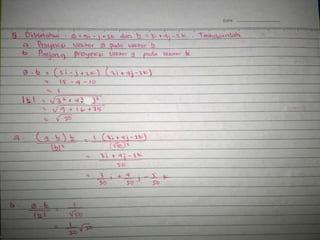 Date
Diketahui : a = 5i - j + 2k dan b = 3i + 4j - 5k. Tentukanlah
a. Proyeksi vektor a pada vektor b
b. Panjang proyeksi vektor a pada vektor b
a · b = (5i - j + 2k) (3i + 4j - 5k)
= 15 - 4 - 10
= 1
= √9 + 16 + 25
= √50
a. (a · b) b / |b|² = 1 (3i + 4j - 5k) / (√50)²
= 3i + 4j - 5k / 50
= 3/50 i + 4/50 j - 5/50 k
b. a · b / |b| = 1/√50
= 1/50 √50